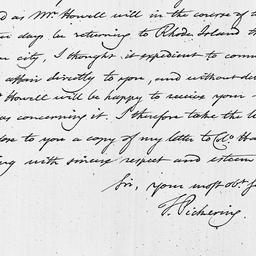 d as Mr Howell will in the course of a
day be returning to Rhode Island th
city, I thought it expedient to comm
affair directly to you, and without de
Howell will be happy to receive your
as concerning it. I therefore take the l
to you a copy of my letter to Colo. Ha
ng with sincere respect and esteem
Sir, your most obt.
T. Pickering